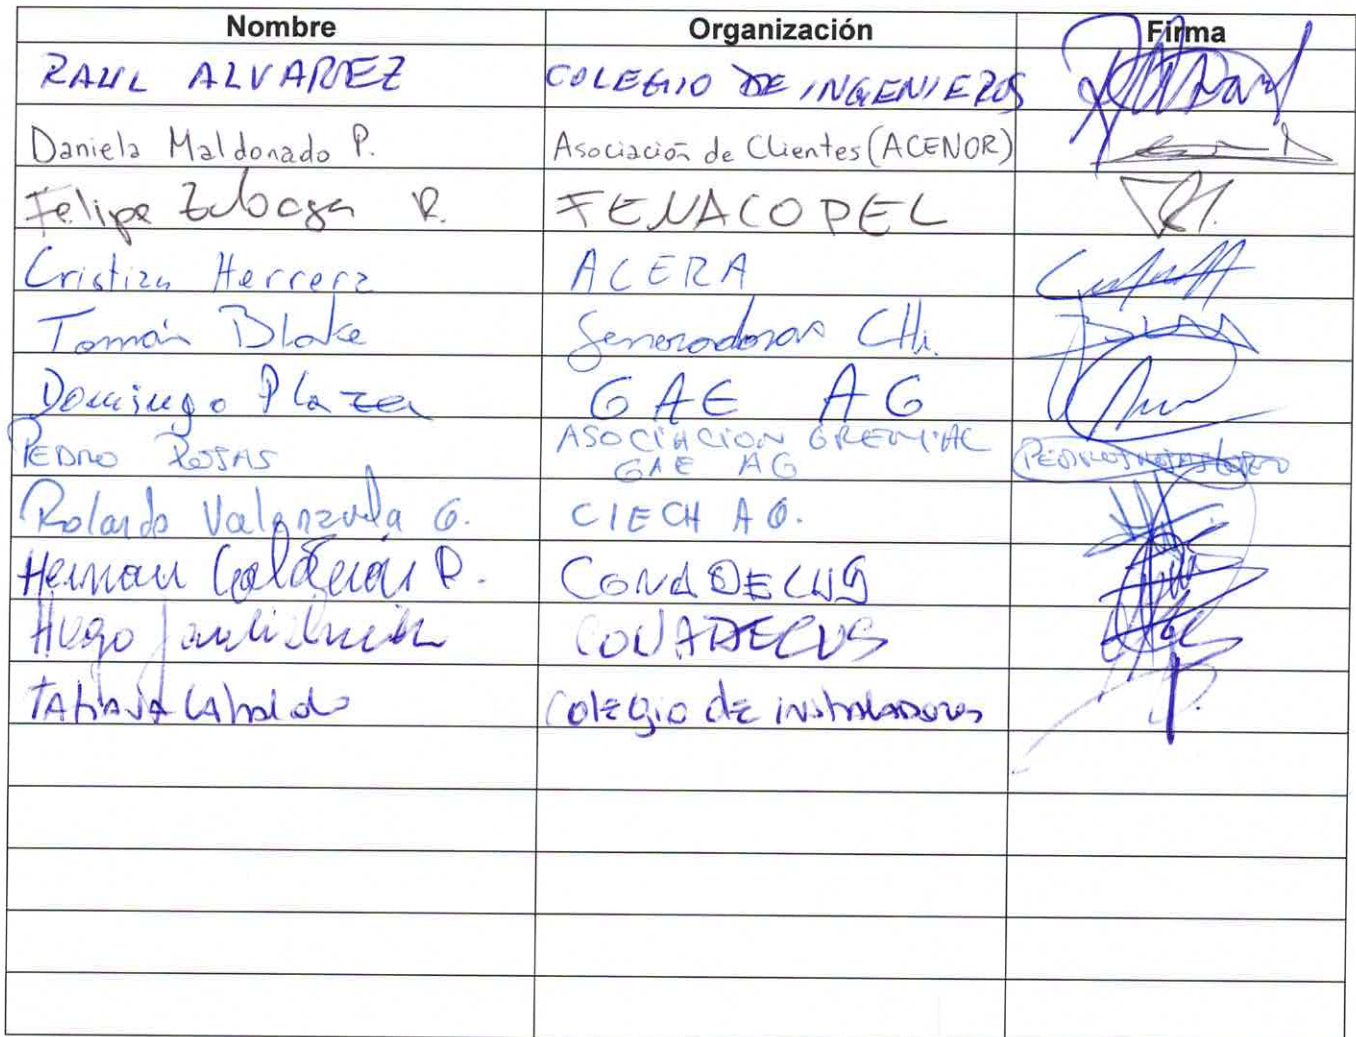 Nombre Organización Firma
RAUL ALVAREZ COLEGIO DE INGENIEROS
Daniela Maldonado P. Asociación de Clientes (ACENOR)
Felipe R. FENACOPEL
Cristian Herrera ACERA
Tomás Blake Generadoras
Domingo Plaza GAE AG
PEDRO ROJAS ASOCIACION GREMIAL
GAE AG
Rolando Valenzuela G. CIECH A G.
Hernan Calderón R. CONADECUS
Hugo CONADECUS
TATIANA Colegio de instaladores